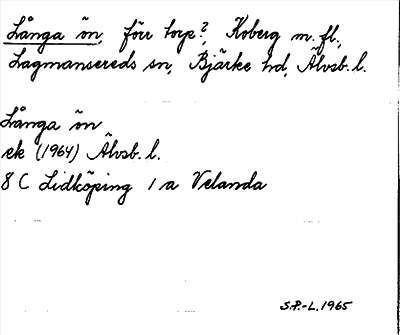 Långa ön, förr torp?, Koberg m.fl.,
Lagmansereds sn, Bjärke hd, Älvsb. l.
Långa ön
ek (1964) Älvsb. l.
8 C Lidköping 1 a Velanda
S.P.-L. 1965